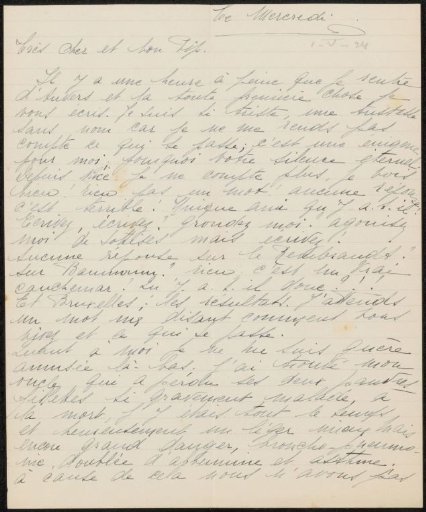 Ce Mercredi
1-5-24
Très cher et bon
Il y a une heure à peine que je rentre
d'Anvers et la toute première chose je
vous écris. Je suis si triste, une tristesse
sans nom car je ne me rends pas
compte ce qui se passe, c'est une énigme
pour moi, pourquoi votre silence éternel
depuis je ne compte plus, je vois
rien! rien pas un mot aucune
c'est terrible! Unique ami qu'y a-t-il?
Ecrivez, écrivez! Grondez moi agonisez
moi de sottises mais écrivez.
Aucune réponse sur le Rembrandt?
Sur rien, c'est un vrai
cauchemar! Qu'y a-t-il donc?
Et Bruxelles; les resultats. J'attends
un mot me disant comment vous
vivez et ce qui se passe.
Quant à moi je ne me suis guère
amusée là-bas, j'ai trouvé mon
oncle, que a perdu ses deux pauvres
si gravement malade, à
la mort, j'y étais tout le temps
et heureusement un léger mieux mais
encore grand danger, broncho-pneumo-
nie, doublée d' et asthme.
à cause de cela nous n'avons pas